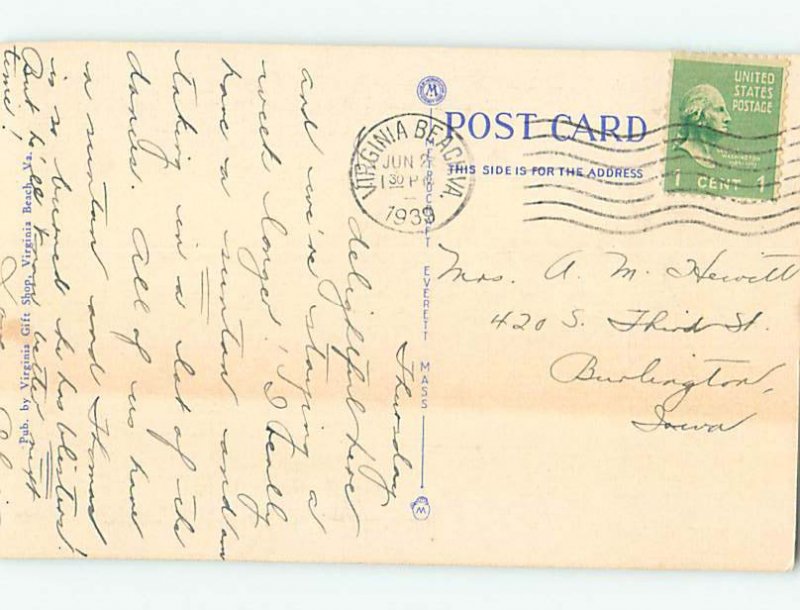 POST CARD
THIS SIDE IS FOR THE ADDRESS
UNITED
STATES
POSTAGE
WASHINGTON
1 CENT 1
VIRGINIA BEACH, VA.
JUN 2
1 30 PM
1939
Mrs. A. M. Hewitt
420 S. Third St.
Burlington,
Iowa
METROCRAFT EVERETT MASS
W
W
Thursday
delightful here
and we're staying a
week longer! I really
have a suntan and am
taking in a lot of the
dances. All of us have
a suntan and Thomas
is so burned he has blisters!
But he'll be
time!
Love
Pub. by Virginia Gift Shop, Virginia Beach, Va.